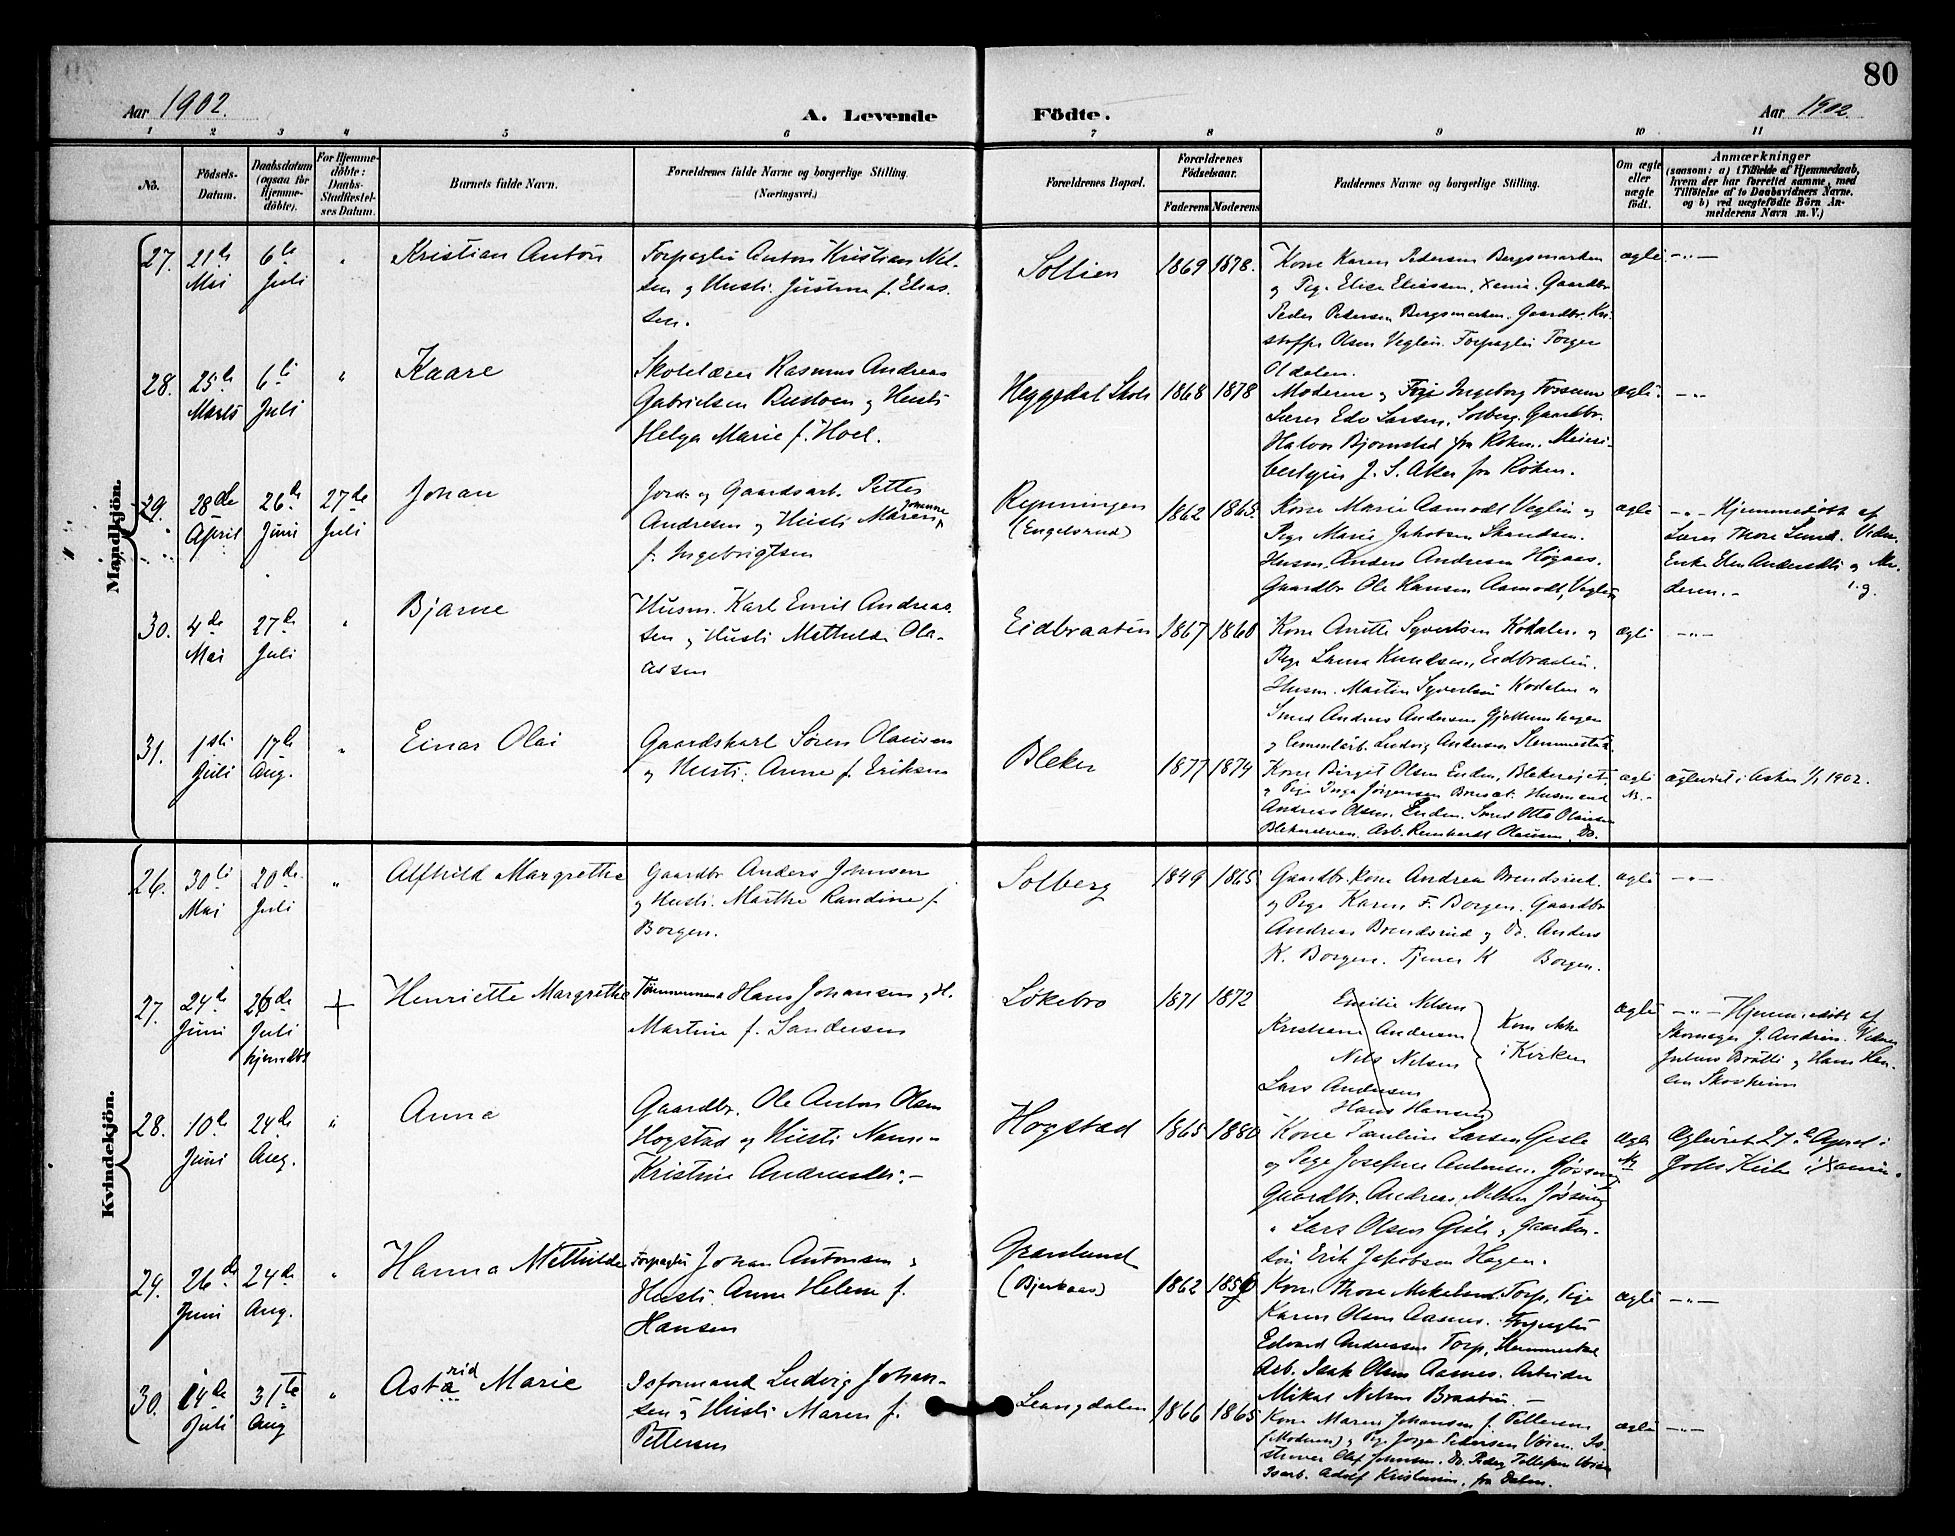 80
Aar 1902.
A. Levende
Födte.
Aar 1902.
1 2 3 4 5 6 7 8 9 10 11
No.
Födsels-
Datum.
Daabsdatum
(ogsaa for
Hjemme-
döbte).
For Hjemme-
döbte:
Daabs-
Stadfæstel-
ses Datum.
Barnets fulde Navn.
Forældrenes fulde Navne og borgerlige Stilling.
(Næringsvei.)
Forældrenes Bopæl.
Forældrenes
Födselsaar.
Faderens
Moderens
Faddernes Navne og borgerlige Stilling.
Om ægte
eller
uægte
födt.
Anmærkninger
(saasom: a) i Tilfælde af Hjemmedaab,
hvem der har forrettet samme, med
Tilföielse af to Daabsvidners Navne.
og b) ved uægtefödte Börn An-
melderens Navn m. V.)
Mandkjön.
27. 21de Mai
6te Juli
Kristian Anton
Forpagter Anton Kristian Nel-
sen og Hustr. Justine f. Elias-
sen.
Sollien
1869 1878.
Kone Karen Pedersen Bergsmarken
og Pige Elise Eliassen, Gaardbr
Peder Pedersen Bergsmarken. Gaardbr. Kri-
stoffer Olsen Veglen. Forpagter Torger
Oldalen.
ægte
28. 25de Marts
6te Juli
Kaare
Skolelærer Rasmus Andreas
Gabrielsen Rustoen og Hustr
Helga Marie f. Hoel.
Heggedal Skole
1868 1878
Moderen og Pige Ingeborg Fossum
Lærer Edv Larsen, Solberg, Gaardbr.
Halvor Bjørnstad fra Røken. Meieri-
bestyrer J. S. Aker fra Røken.
ægte
29. 28de April
26de Juni
27de Juli
Johan
Jord- og Gaardsarb. Petter
Andresen og Hustr Maren Johanne
f. Ingebrigtsen
Rynningen
(Engelsrud)
1862 1865.
Kone Marie Aamodt Veglen og
Pige Marie Jakobsen Skandsen.
Husm. Anders Andresen Høgaas.
Gaardbr Ole Hansen Aamodt, Veglen
ægte
Hjemmedøbt af
Lærer Thore Lund. Vidner
Enke Elen Andersdtr og Mo-
deren.
30. 4de Mai
27de Juli
Bjarne
Husm. Karl Emil Andreas-
sen og Hustr Mathilde Ola-
assen
Eidbraaten
1867 1860
Kone Anette Syvertsen Kodalen og
Pige Laura Knudsen, Eidbraaten.
Husm. Martin Syvertsen Kodalen og
Smed Andreas Andersen Gjellumhagen
og Cementarb. Ludvig Andersen Slemmestad
ægte
31. 1ste Juli
17de Aug.
Einar Olai
Gaardskarl Søren Olausen
og Hustr. Anne f. Eriksen
Bleker
1877 1874
Kone Birget Olsen Enden, Blekerejet
og Pige Inga Jørgensen Husmænd
Andreas Olsen, Enden. Smed Otto Olausen
Arb. Reinhardt Olausen, Do.
ægte
ægteviet i Asker 1902.
Kvindekjön.
26. 30te Mai
20de Juli
Alfhild Margrethe
Gaardbr Anders Johnsen
og Hustr. Marthe Randine f.
Borgen.
Solberg
1849 1865
Gaardbr. Kone Andrea Brendsrud.
og Pige Karen F. Borgen. Gaardbr
Andreas Brendsrud og Do. Anders
K. Borgen. Tjener K Borgen.
ægte
27. 24de Juni
26de Juli
hjemdøbt
Henriette Margrethe
Tømmermand Hans Johansen og H.
Martine f. Sandersen
Løkebro
1871 1872
Emilie Nilsen
Kristiane Andersen
Nils Nilsen
Lars Andersen
Hans Hansen
Kom ikke
i Kirken
ægte
Hjemmedøbt af
Skomager J. Andresen. Vidner
Julius Bratli og Hans Han-
sen Skovheim
28. 10de Juni
24de Aug.
Anna
Gaardbr. Ole Anton Olsen
Hogstad og Hustr Nanna
Kristine Andreasdtr.
Hogstad
1865 1880
Kone Pauline Larsen Gisle
og Pige Josefine Andersen Jøssong
Gaardbr. Andreas Nilsen Jøssong
" Lars Olsen Gisle, Gaardm-
søn Erik Jakobsen Hagen.
ægte
Ægteviet 27de April i
Johs Kirke i Xania
29. 26de Juni
24de Aug.
Hanna Mathilde
Forpagter Johan Antonsen og
Hustr. Anne Helene f.
Hansen
Grønlund
(Bjerkaas)
1862 1856
Kone Thora Mikelsen Torp, Pige
Karen Olsen Aasnes. Forpagter
Edvard Andreassen Torp, Slemmestad
Arb. Isak Olsen Aasnes. Arbeider
Mikal Nilsen Braaten.
ægte
30. 14de Juli
31te Aug
Astarid Marie
Isformand Ludvig Johan-
sen og Hustr Maren f.
Pettersen
Leangdalen
1866 1865
Kone Maren Johansen f. Pettersen
(Moderen) og Pige Jorga Pedersen Vøien. Is-
Olaf Johnsen. Do. Peder Tollefsen Vøien
Isarb. Adolf Kristensen, fra Dalen.
ægte